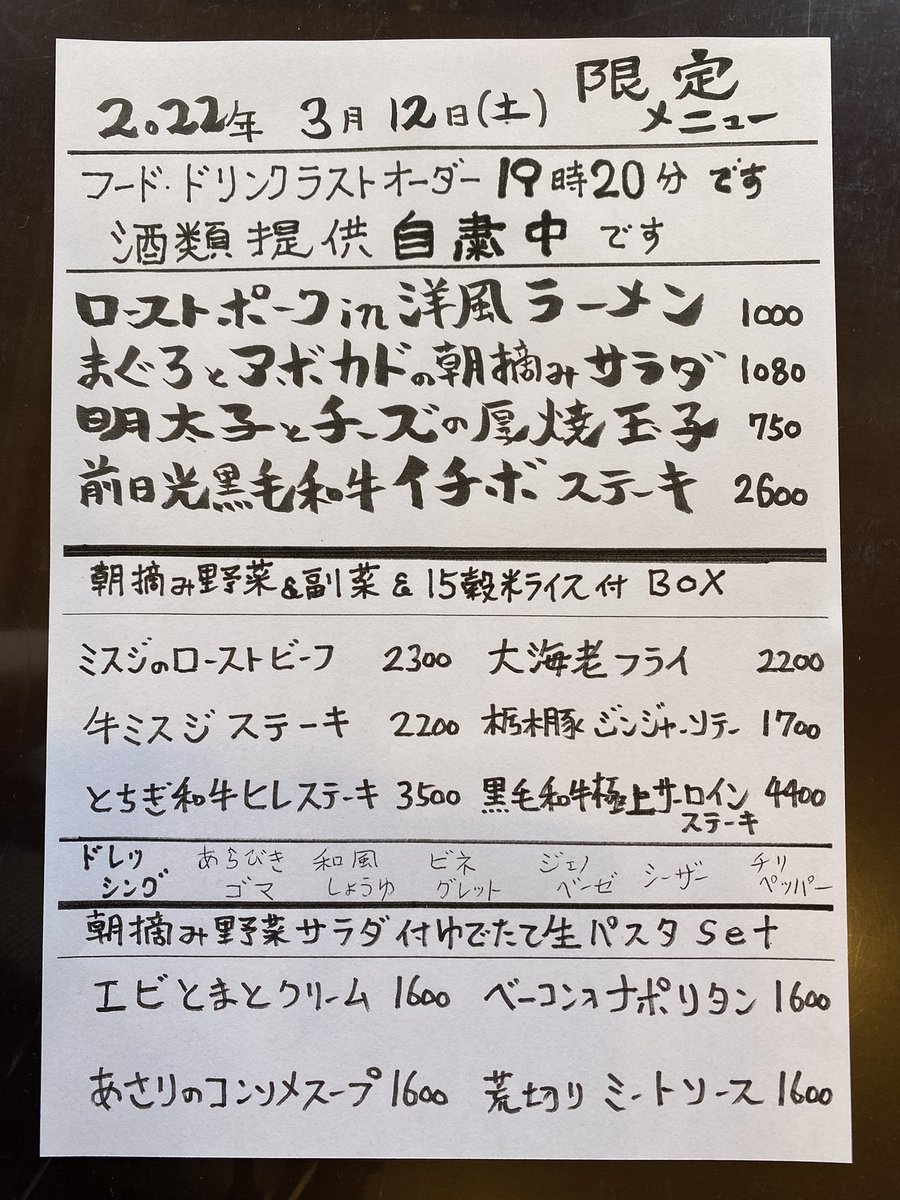 2022年 3月12日(土) 限定メニュー
フード・ドリンクラストオーダー 19時20分 です
酒類提供 自粛中 です
ローストポーク in 洋風ラーメン 1000
まぐろとアボカドの朝摘みサラダ 1080
明太子とチーズの厚焼玉子 750
前日光黒毛和牛イチボステーキ 2600
朝摘み野菜&副菜&15穀米ライス付 BOX
ミスジのローストビーフ 2300 大海老フライ 2200
牛ミスジステーキ 2200 栃木豚ジンジャーソテー 1700
とちぎ和牛ヒレステーキ 3500 黒毛和牛極上サーロインステーキ 4400
ドレッシング あらびきゴマ 和風しょうゆ ビネグレット ジェノベーゼ シーザー チリペッパー
朝摘み野菜サラダ付ゆでたて生パスタ Set
エビとまとクリーム 1600 ベーコンonナポリタン 1600
あさりのコンソメスープ 1600 荒切りミートソース 1600